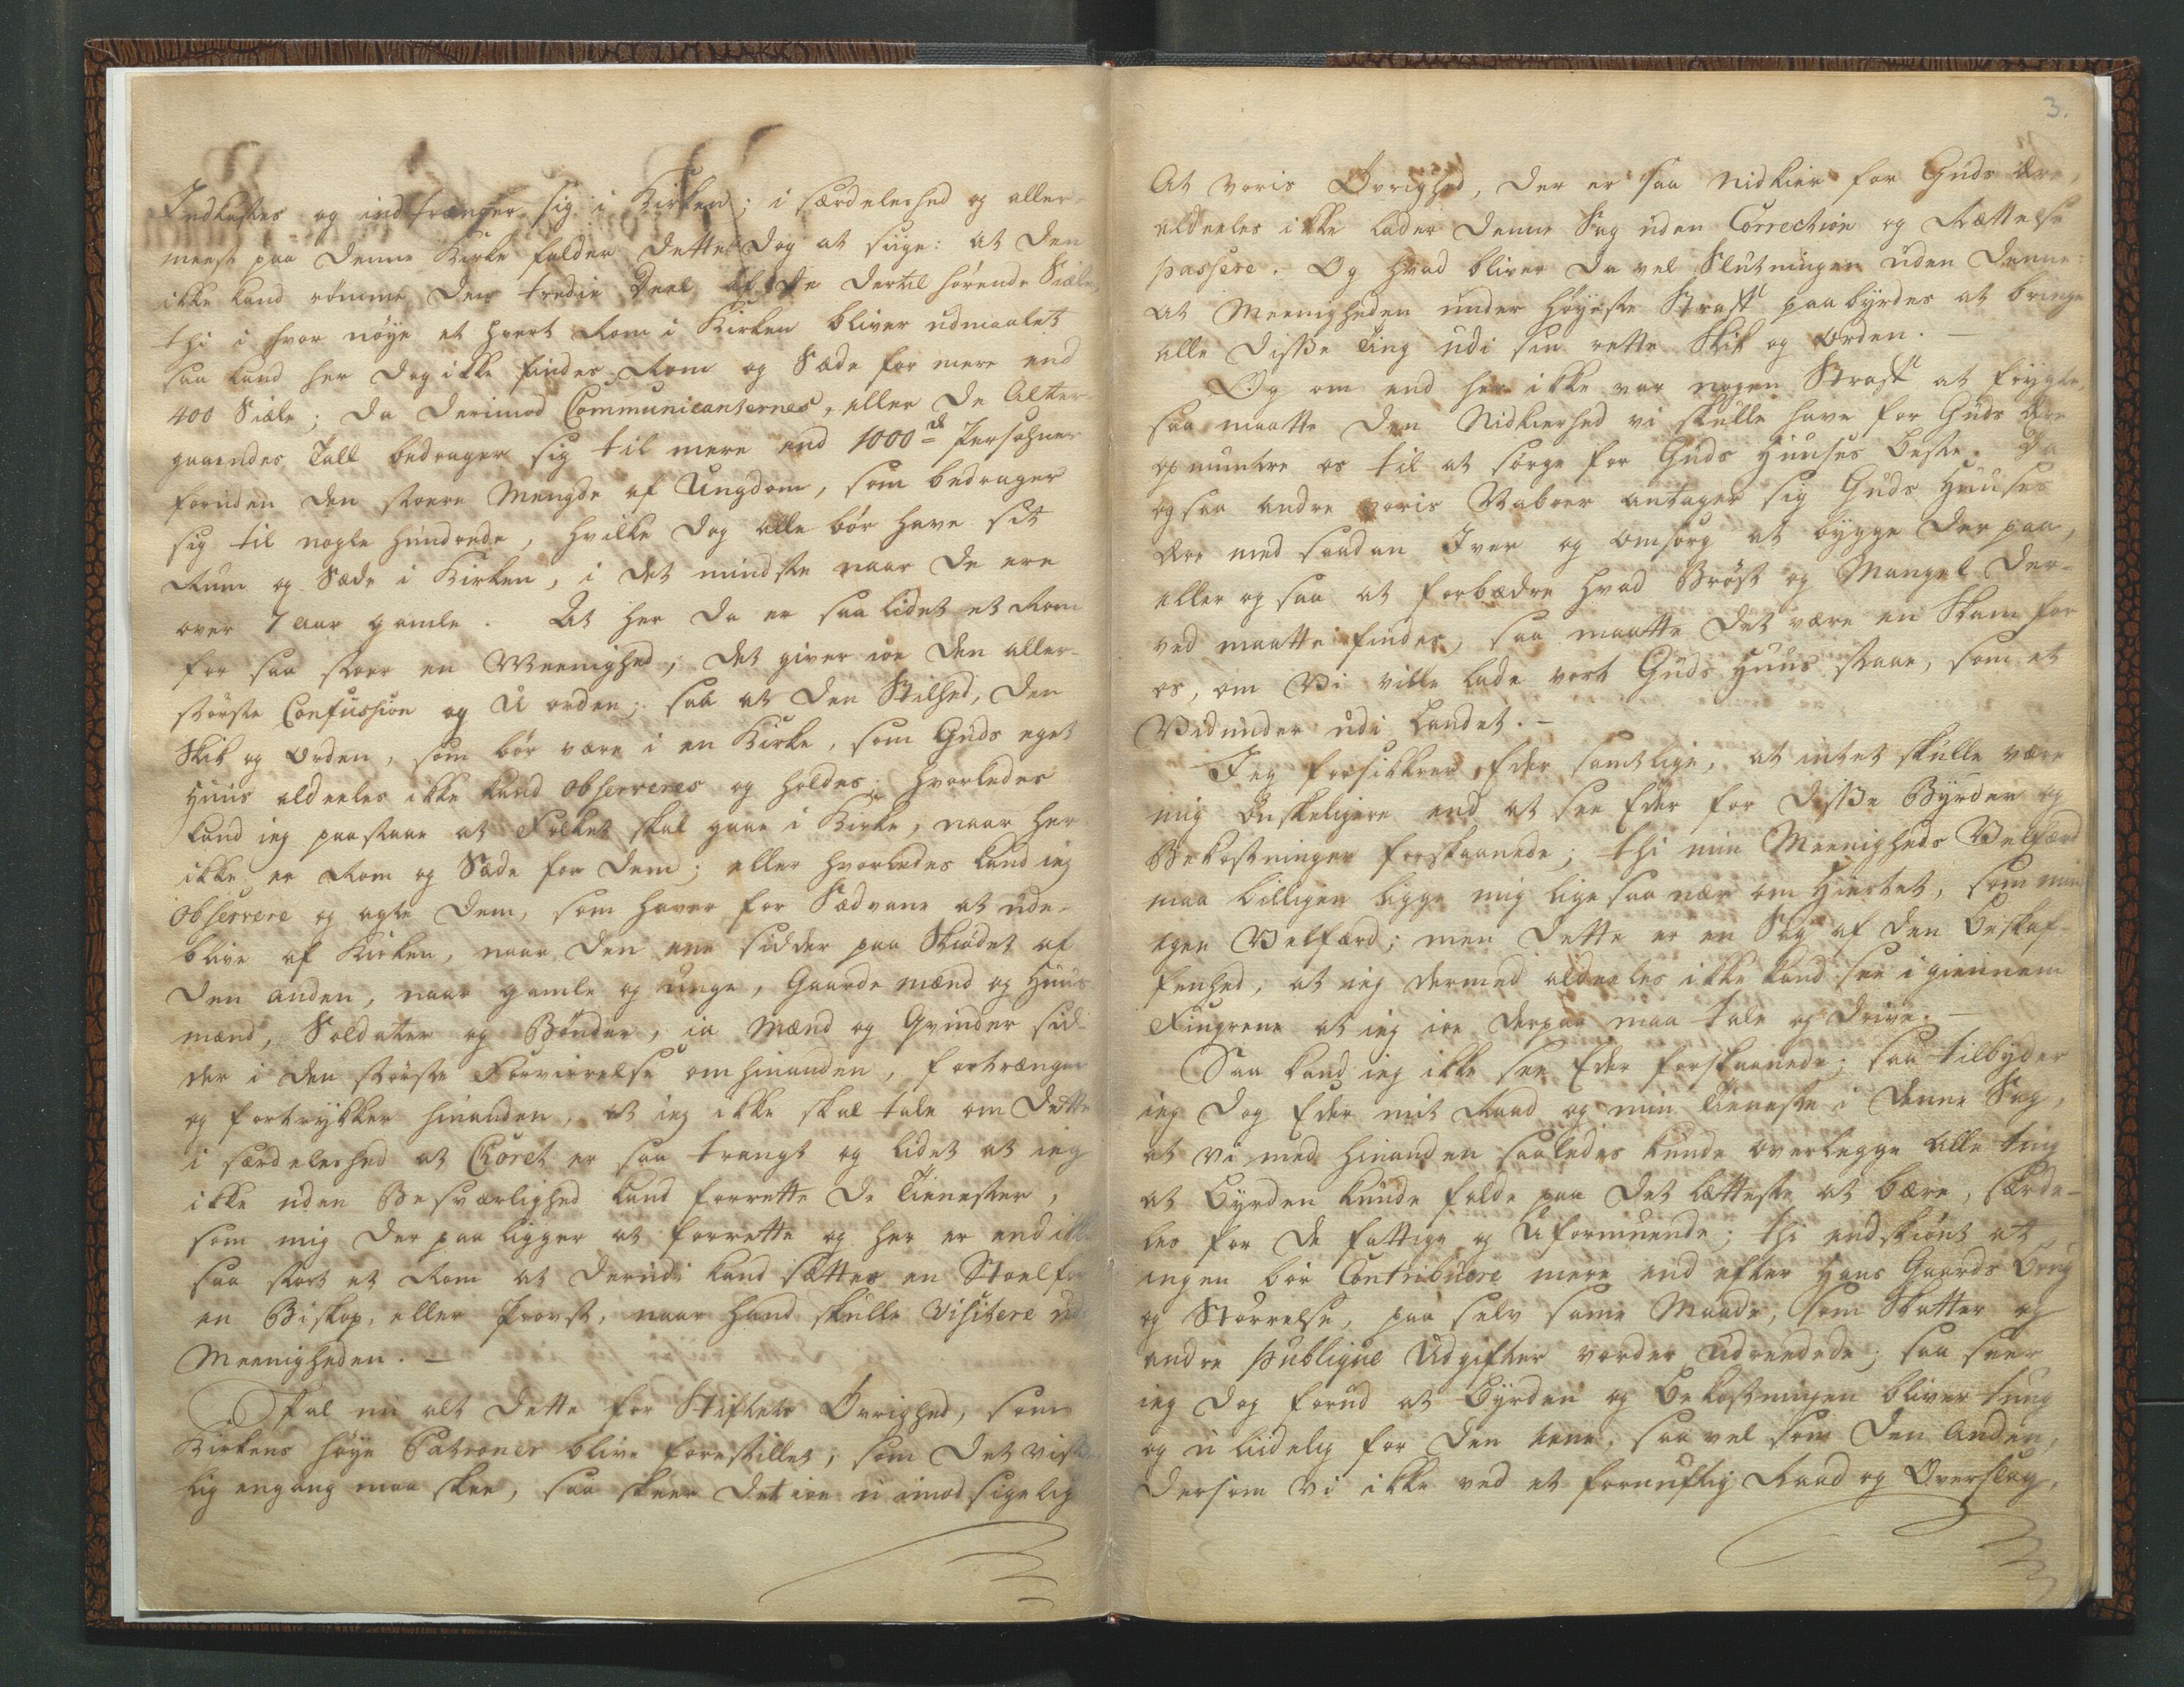 Indkastes og indtrænger sig i Kirken; i særdeleshed og aller-
meest paa denne Kirke falder dette dog at siige: at den
ikke kand römme den tredie Deel af de dertil hörende Siæle,
thi i hvor nöye et hvert Rom i Kirken bliver udmaalet
saa kand her dog ikke findes Rom og Sæde for mere end
400 Siæle; da derimod Communicanternes, eller de Alter-
gaaendes Tall bedrager sig til mere end 1000de Persohner
foruden den stoere Mengde af Ungdom, som bedrager
sig til nogle hundrede, hvilke dog alle bör have sit
Rum og Sæde i Kirken, i det mindste naar de ere
over 7 aar gamle. At her da er saa lidet et Rom
for saa stoer en Meenighed, det giver ioe den aller-
störste Confussion og U orden; saa at den Stilhed, den
Skik og Orden, som bör være i en Kirke, som Guds eget
Huus aldeeles ikke kand observeres og holdes; hvorledes
kand ieg paastaae at Folket skal gaae i Kirke, naar her
ikke er Rom og Sæde for dem; eller hvorledes kand ieg
observere og agte dem, som haver for Sædvane at ude-
blive af Kirken, naar den ene sidder paa Skiödet af
den anden, naar gamle og unge, Gaardemænd og Huus-
mænd, Soldater og Bönder, ia Mænd og Qvinder sid-
der i den störste Forvirrelse om hinanden, fortrænger
og fortrykker hinanden, at ieg ikke skal tale om dette
i særdeleshed at Choret er saa trangt og lidet at ieg
ikke uden Besværlighed kand forrette de Tienester,
som mig der paa ligger at forrette og her er end ikke
saa stort et Rom at derudi kand sættes en Stoel for
en Biskop, eller Provst, naar hand skulle Visitere udi
Meenigheden. —
Skal nu alt dette for Stiftets Övrighed, som
Kirkens höye Patroner blive forestillet, som det vist-
lig engang maa skee, saa skeer det ioe u imodsigelig
3.
At voris Övrighed, der er saa nidkier for Guds Ære,
aldeeles ikke lader denne Sag uden Correction og Rættelse
passere. Og hvad bliver da vel Slutningen uden denne:
at Meenigheden under höyeste Straf paabyrdes at bringe
alle disse Ting udi sin rette Skik og Orden. —
Og om end her ikke var nogen Straf at frygte,
saa maatte den Nidkierhed vi skulle have for Guds Ære
opmuntre os til at sörge for Guds Huuses beste. Da
ogsaa andre voris Naboer antager sig Guds Huuses
Ære med saadan Iver og omsorg at bygge derpaa,
eller ogsaa at forbædre hvad Bröst og Mangel der-
ved maatte findes, saa maatte det være en Skam for
os, om Vi ville lade vort Guds Huus staae, som et
Vidunder udi Landet. —
Jeg forsikkrer Eder samtlige, at intet skulle være
mig önskeligere end at see Eder for disse Byrder og
Bekostninger forskaanede; thi min Meenigheds Velfærd
maa billigen ligge mig lige saa nær om Hiertet, som min
egen Velfærd; men dette er en Sag af den beskaf-
fenhed, at ieg dermed aldeeles ikke kand see igiennem
Fingrene at ieg ioe derpaa maa tale og drive. —
Saa kand ieg ikke see Eder forskaanede; saa tilbyder
ieg dog Eder mit Raad og min Tieneste i denne Sag,
at vi med hinanden saaledes kunde overlegge alle ting
at byrden kunde falde paa det lætteste at bære, særde-
les for de fattige og Uformuende; thi endskiönt at
ingen bör Contribuere mere end efter Hans Gaards brug
og Störrelse, paa selv samme Maade, som Skatter og
andre publique Udgifter vorder udreedede; saa seer
ieg dog forud at byrden og bekostningen bliver tung
og u liidelig for den eene, saa vel som den anden,
dersom vi ikke ved et fornuftig Raad og Overslag,